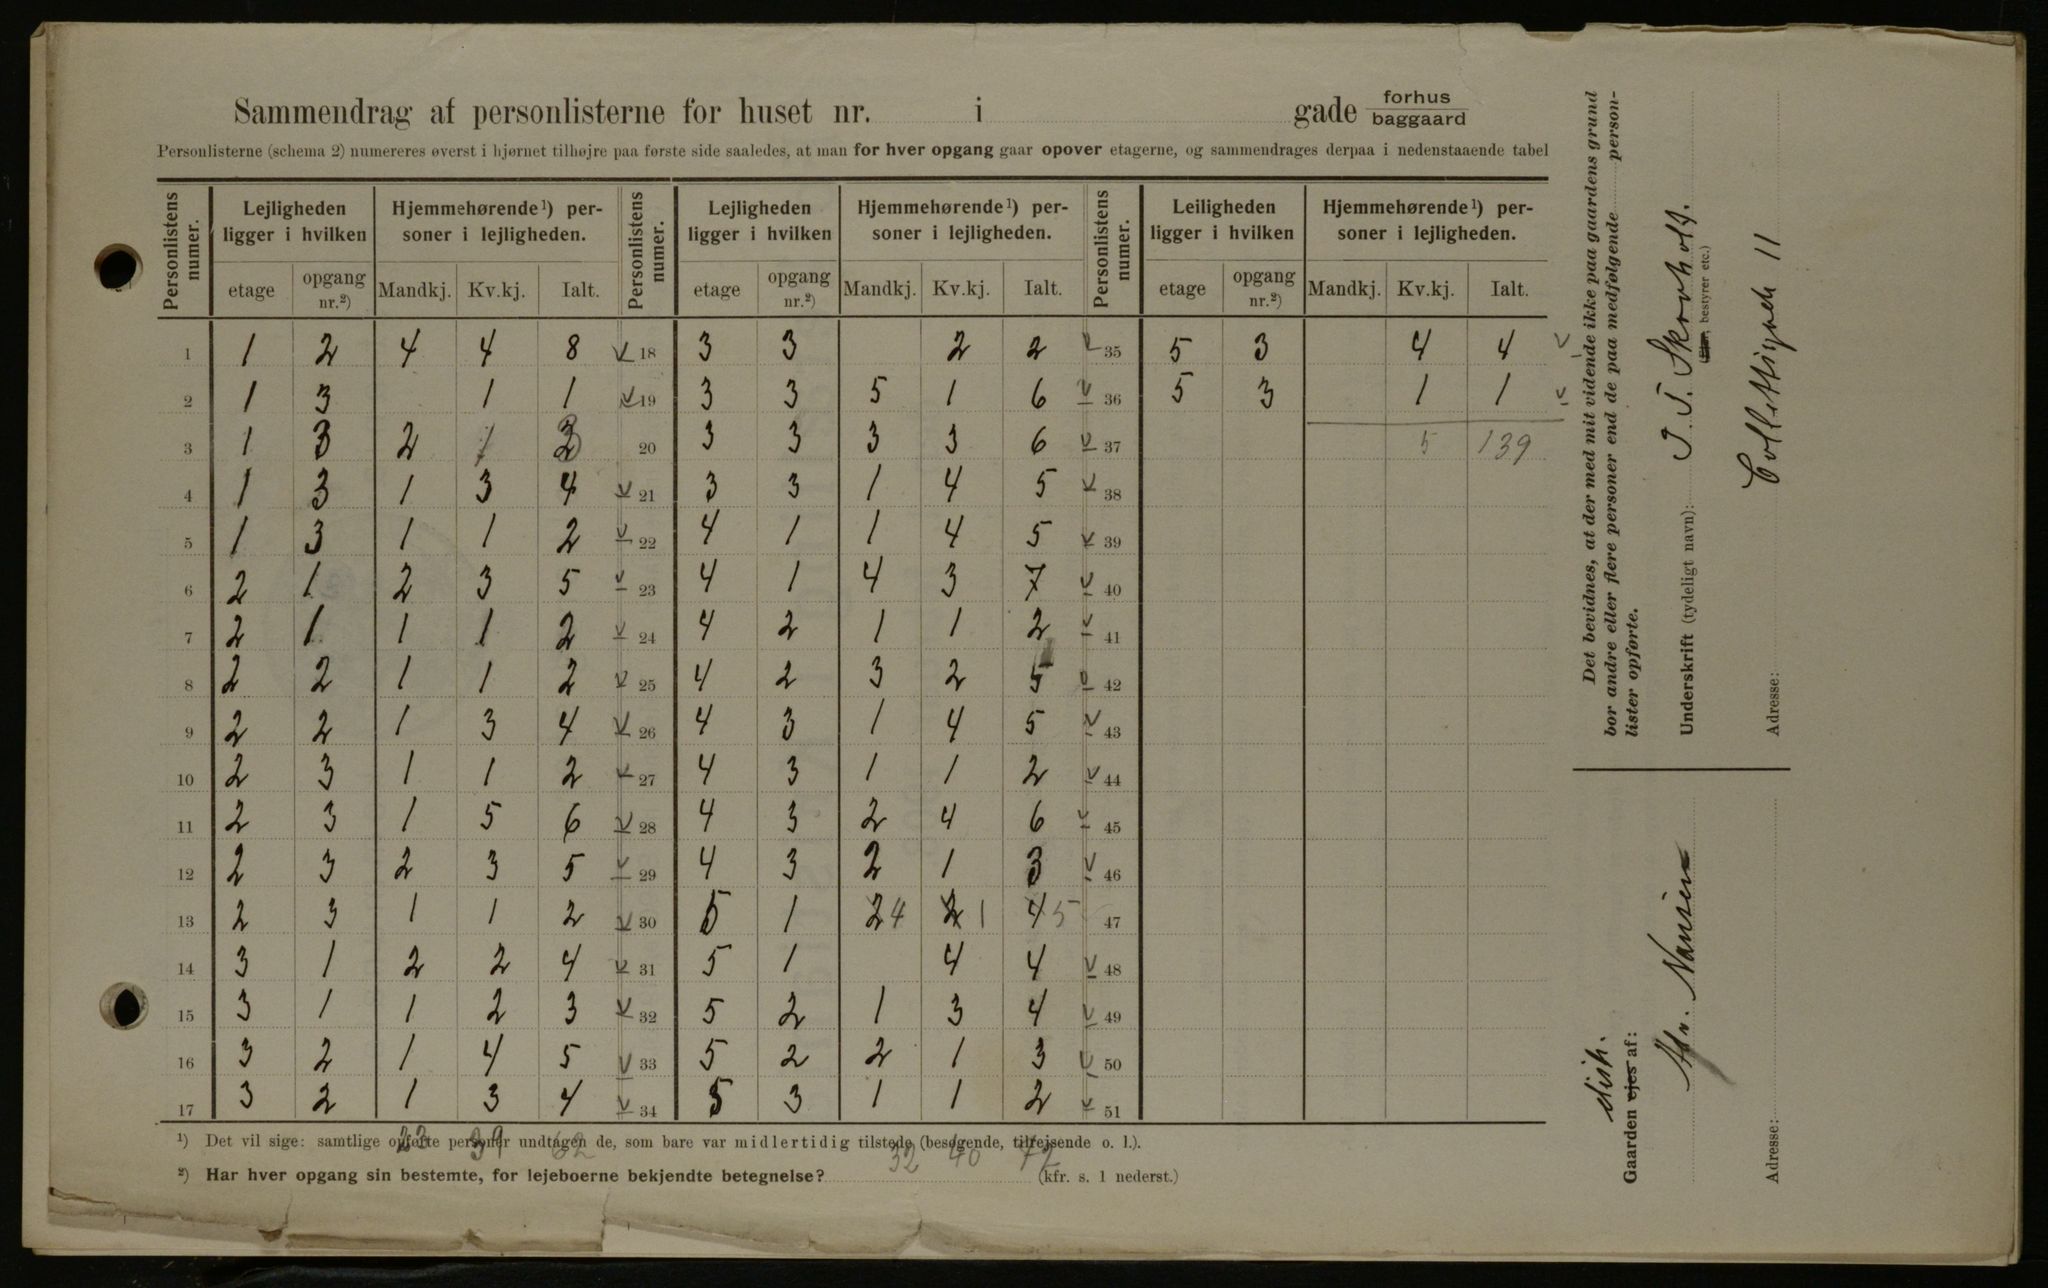 Sammendrag af personlisterne for huset nr. i gade forhus baggaard
Personlisterne (schema 2) numereres øverst i hjørnet tilhøjre paa første side saaledes, at man for hver opgang gaar opover etagerne, og sammendrages derpaa i nedenstaaende tabel
Personlistens numer. Lejligheden ligger i hvilken Hjemmehørende ¹) personer i lejligheden. Personlistens numer. Lejligheden ligger i hvilken Hjemmehørende ¹) personer i lejligheden. Personlistens numer. Leiligheden ligger i hvilken Hjemmehørende ¹) personer i lejligheden.
etage opgang nr.²) Mandkj. Kv.kj. Ialt. etage opgang nr.²) Mandkj. Kv.kj. Ialt. etage opgang nr.²) Mandkj. Kv.kj. Ialt.
1 1 2 4 4 8 v 18 3 3 2 2 v 35 5 3 4 4 v
2 1 3 1 1 v 19 3 3 5 1 6 v 36 5 3 1 1 v
3 1 3 2 1 3 20 3 3 3 3 6 v 37 5 139
4 1 3 1 3 4 v 21 3 3 1 4 5 v 38
5 1 3 1 1 2 v 22 4 1 1 4 5 v 39
6 2 1 2 3 5 v 23 4 1 4 3 7 v 40
7 2 1 1 1 2 v 24 4 2 1 1 2 v 41
8 2 2 1 1 2 v 25 4 2 3 2 5 v 42
9 2 2 1 3 4 v 26 4 3 1 4 5 v 43
10 2 3 1 1 2 v 27 4 3 1 1 2 v 44
11 2 3 1 5 6 v 28 4 3 2 4 6 v 45
12 2 3 2 3 5 v 29 4 3 2 1 3 v 46
13 2 3 1 1 2 v 30 5 1 2 4 2 1 4 5 v 47
14 3 1 2 2 4 v 31 5 1 4 4 v 48
15 3 1 1 2 3 v 32 5 2 1 3 4 v 49
16 3 2 1 4 5 v 33 5 2 2 1 3 v 50
17 3 2 1 3 4 v 34 5 3 1 1 2 v 51
¹) Det vil sige: samtlige opførte personer undtagen de, som bare var midlertidig tilstede (besøgende, tilrejsende o. l.).
23 39 62 32 40 72
²) Har hver opgang sin bestemte, for lejeboerne bekjendte betegnelse? (kfr. s. 1 nederst.)
Det bevidnes, at der med mit vidende ikke paa gaardens grund
bor andre eller flere personer end de paa medfølgende personlister opførte.
Underskrift (tydeligt navn): J. T. Skovholt.
(Eier, bestyrer etc.)
Adresse: Collettsgade 11
Gaarden ejes af:
Nansen
Adresse: